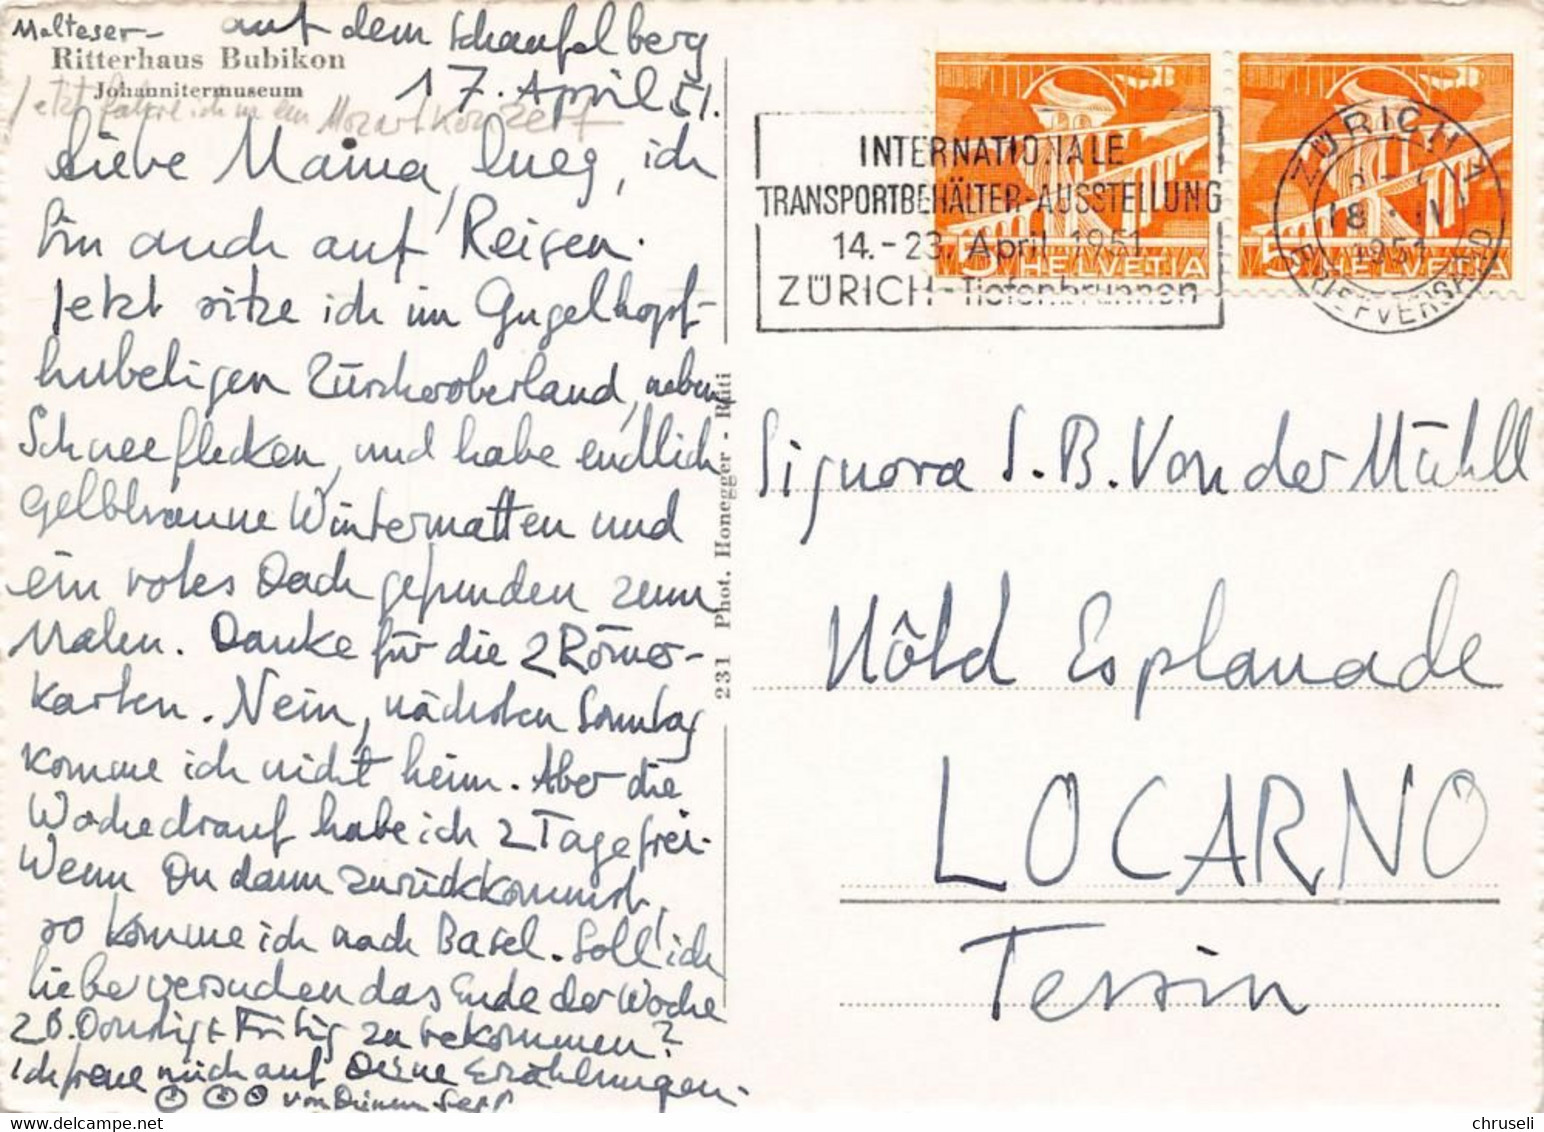 Malteser-
Ritterhaus Bubikon
Johannitermuseum
auf dem Schaufelberg
17. April 51.
Jetzt fahre ich in ein Mozartkonzert
Liebe Mama, lueg, ich
bin auch auf Reisen.
Jetzt sitze ich im Gugelhopf-
hubeligen Zürcheroberland, neben
Schneeflecken, und habe endlich
gelbbraune Wintermatten und
ein rotes Dach gefunden zum
Malen. Danke für die 2 Römer-
karten. Nein, nächsten Sonntag
komme ich nicht heim. Aber die
Woche drauf habe ich 2 Tage frei.
Wenn Du dann zurückkommst,
so komme ich nach Basel. Soll ich
lieber versuchen das Ende der Woche
z B. Donnstig + Fritig zu bekommen?
Ich freue mich auf Deine Erzählungen.
von Deinem
231 Phot. Honegger - Rüti
INTERNATIONALE
TRANSPORTBEHÄLTER-AUSSTELLUNG
14.-23. April 1951
ZÜRICH-Tiefenbrunnen
5 HELVETIA
5 HELVETIA
ZÜRICH 1
18.
1951
BRIEFVERSAND
Signora S. B. Von der Mühll
Hôtel Esplanade
LOCARNO
Tessin
chruseli